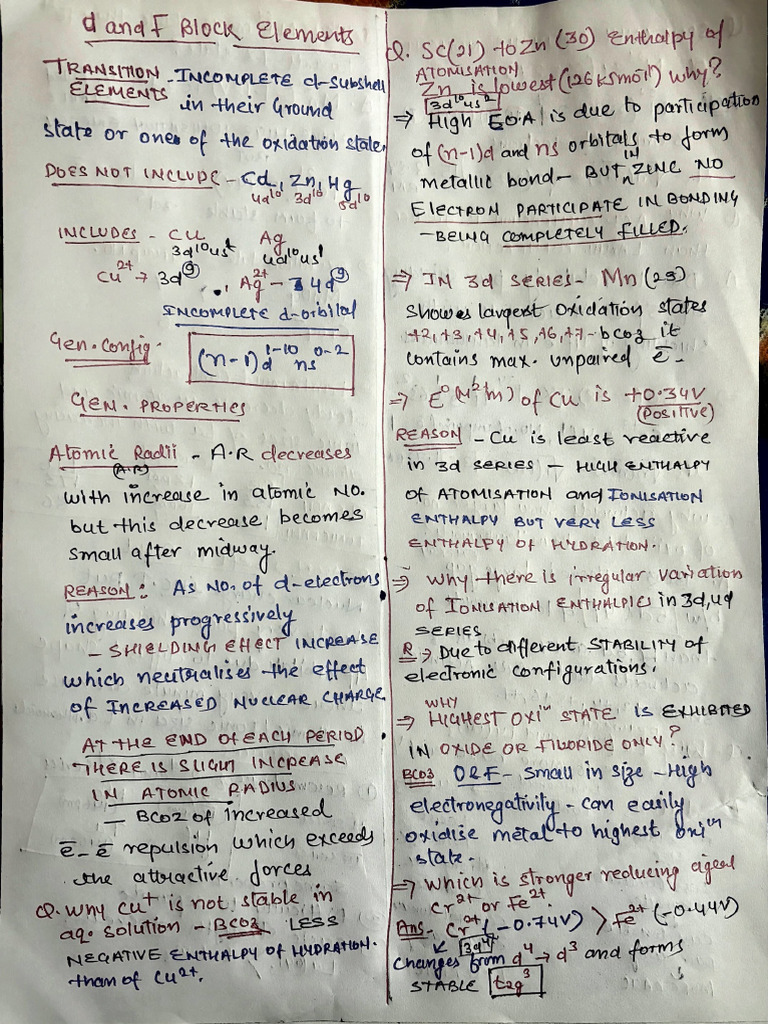 d and F Block Elements
TRANSITION - INCOMPLETE d-subshell
ELEMENTS in their Ground
state or one of the oxidation state.
DOES NOT INCLUDE - Cd, Zn, Hg
4d¹⁰ 3d¹⁰ 5d¹⁰
INCLUDES - Cu Ag
3d¹⁰4s¹ 4d¹⁰4s¹
Cu²⁺ → 3d⁹, Ag²⁺ - 4d⁹
INCOMPLETE d-orbital
Gen. Config. (n-1)d¹⁻¹⁰ ns⁰⁻²
GEN. PROPERTIES
Atomic Radii - A.R decreases
(A.R)
with increase in atomic NO.
but this decrease becomes
small after midway.
REASON: As No. of d-electrons
increases progressively
- SHIELDING EFFECT INCREASE
which neutralises the effect
of INCREASED NUCLEAR CHARGE
AT THE END OF EACH PERIOD
THERE IS SLIGHT INCREASE
IN ATOMIC RADIUS
- BCOZ of increased
e̅-e̅ repulsion which exceeds
the attractive forces
Q. Why Cu⁺ is not stable in
aq. solution - BCOZ LESS
NEGATIVE ENTHALPY OF HYDRATION.
than of Cu²⁺.
Q. SC(21) to Zn (30) Enthalpy of
ATOMISATION
Zn is lowest (126 KJ mol⁻¹) why?
3d¹⁰4s²
⇒ High E.O.A is due to participation
of (n-1)d and ns orbitals to form
metallic bond - BUT IN ZINC NO
ELECTRON PARTICIPATE IN BONDING
- BEING COMPLETELY FILLED.
⇒ IN 3d SERIES - Mn (25)
shows largest oxidation states
+2,+3,+4,+5,+6,+7 - bcoz it
contains max. unpaired e̅.
⇒ E⁰(M²⁺/M) of Cu is +0.34V
(Positive)
REASON - Cu is least reactive
in 3d SERIES - HIGH ENTHALPY
of ATOMISATION and IONISATION
ENTHALPY BUT VERY LESS
ENTHALPY OF HYDRATION.
⇒ Why there is irregular variation
of IONISATION ENTHALPIES in 3d, 4d
SERIES
R → Due to different STABILITY of
electronic configurations.
WHY
⇒ HIGHEST OXIⁿ STATE IS EXHIBITED
IN OXIDE OR FLUORIDE ONLY?
BCOZ O & F - small in size - High
electronegativity - can easily
oxidise metal to highest oxiⁿ
state.
⇒ which is stronger reducing agent
Cr²⁺ or Fe²⁺.
Ans - Cr²⁺ (-0.74V) > Fe²⁺ (-0.44V)
3d⁴
Changes from d⁴ → d³ and forms
STABLE t₂g³